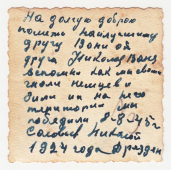 На долгую добрую
память наилучшему
другу Вани от
друга Николая Вани
вспомни как мы вместе
гнали немцев и
били их на его
территории
победили 8-8-45г
Соловьев Николай
1924 года Дрезден